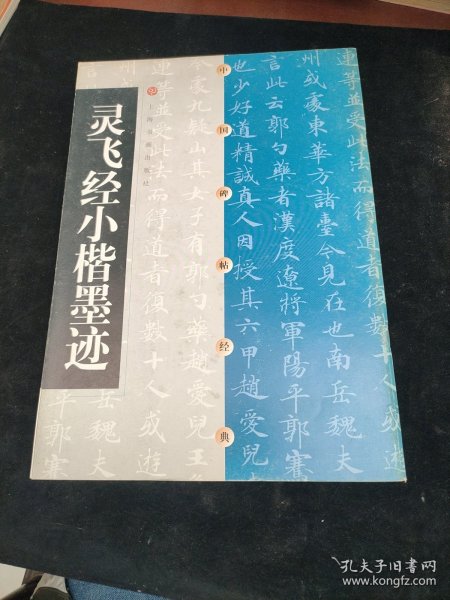 灵飞经小楷墨迹
上海书画出版社
中国碑帖经典
連等並受此法而得道者復數十人或遊
州或處東華方諸臺今見在也南岳魏夫
言此云郭勺藥者漢度遼將軍陽平郭騫
也少好道精誠真人因授其六甲趙愛兒
今處九疑山其女子有郭勺藥趙愛兒王
連等並受此法而得道者復數十人或遊
岳魏夫
平郭騫
孔夫子旧书网
www.kongfz.com